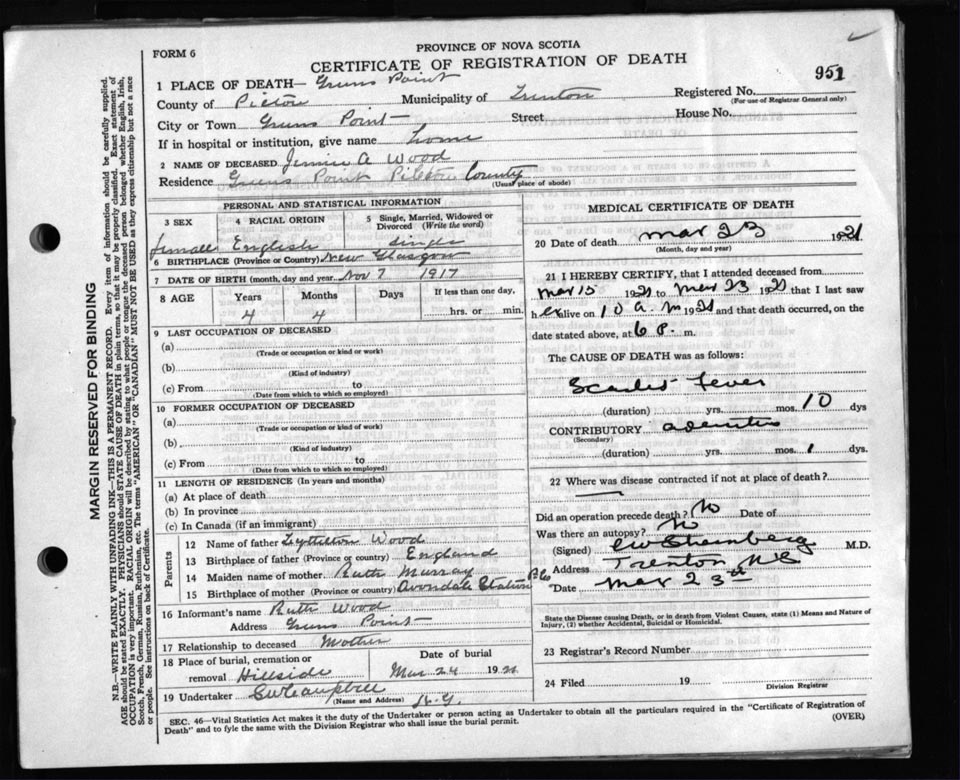 PROVINCE OF NOVA SCOTIA
FORM 6
CERTIFICATE OF REGISTRATION OF DEATH
951
1 PLACE OF DEATH— Greens Point
County of Pictou Municipality of Trenton Registered No.
(For use of Registrar General only)
City or Town Greens Point Street House No.
If in hospital or institution, give name home
2 NAME OF DECEASED Jennie A Wood
Residence Greens Point Pictou County
(Usual place of abode)
PERSONAL AND STATISTICAL INFORMATION
3 SEX 4 RACIAL ORIGIN 5 Single, Married, Widowed or Divorced (Write the word)
female English single
6 BIRTHPLACE (Province or Country) New Glasgow
7 DATE OF BIRTH (month, day and year) Nov 7 1917
8 AGE Years Months Days If less than one day,
4 4 hrs. or min.
9 LAST OCCUPATION OF DECEASED
(a)
(Trade or occupation or kind or work)
(b)
(Kind of industry)
(c) From to
(Date from which to which so employed)
10 FORMER OCCUPATION OF DECEASED
(a)
(Trade or occupation or kind of work)
(b)
(Kind of industry)
(c) From to
(Date from which to which so employed)
11 LENGTH OF RESIDENCE (In years and months)
(a) At place of death
(b) In province
(c) In Canada (if an immigrant)
Parents
12 Name of father Lyttilton Wood
13 Birthplace of father (Province or country) England
14 Maiden name of mother Ruth Murray
15 Birthplace of mother (Province or country) Avondale Station P Co
16 Informant's name Ruth Wood
Address Greens Point
17 Relationship to deceased Mother
18 Place of burial, cremation or Date of burial
removal Hillside Mar 24 19
19 Undertaker CW Campbell
(Name and Address) N. G.
MEDICAL CERTIFICATE OF DEATH
20 Date of death Mar 23 1921
(Month, day and year)
21 I HEREBY CERTIFY, that I attended deceased from
Mar 15 1921 to Mar 23 1921 that I last saw
her alive on 10 a.m 1921 and that death occurred, on the
date stated above, at 6 P. m.
The CAUSE OF DEATH was as follows:
Scarlet Fever
(duration) yrs. mos. 10 dys
CONTRIBUTORY adenitis
(Secondary)
(duration) yrs. mos. 1 dys.
22 Where was disease contracted if not at place of death?
Did an operation precede death? No Date of
Was there an autopsy? No
(Signed) M.D.
Address Trenton NS
"Date Mar 23rd
State the Disease causing Death, or in death from Violent Causes, state (1) Means and Nature of
Injury, (2) whether Accidental, Suicidal or Homicidal.
23 Registrar's Record Number
24 Filed 19
Division Registrar
SEC. 46—Vital Statistics Act makes it the duty of the Undertaker or person acting as Undertaker to obtain all the particulars required in the "Certificate of Registration of
Death" and to fyle the same with the Division Registrar who shall issue the burial permit.
(OVER)
MARGIN RESERVED FOR BINDING
N.B.—WRITE PLAINLY WITH UNFADING INK—THIS IS A PERMANENT RECORD. Every item of information should be carefully supplied.
AGE should be stated EXACTLY. PHYSICIANS should STATE CAUSE OF DEATH in plain terms, so that it may be properly classified. Exact statement of
OCCUPATION is very important. RACIAL ORIGIN will be described by stating to what people or tongue the deceased person belonged whether English, Irish,
Scotch, French, German, Russian, Ruthenian, etc. The terms "AMERICAN" OR "CANADIAN" MUST NOT BE USED as they express citizenship but not a race
or people. See instructions on back of Certificate.